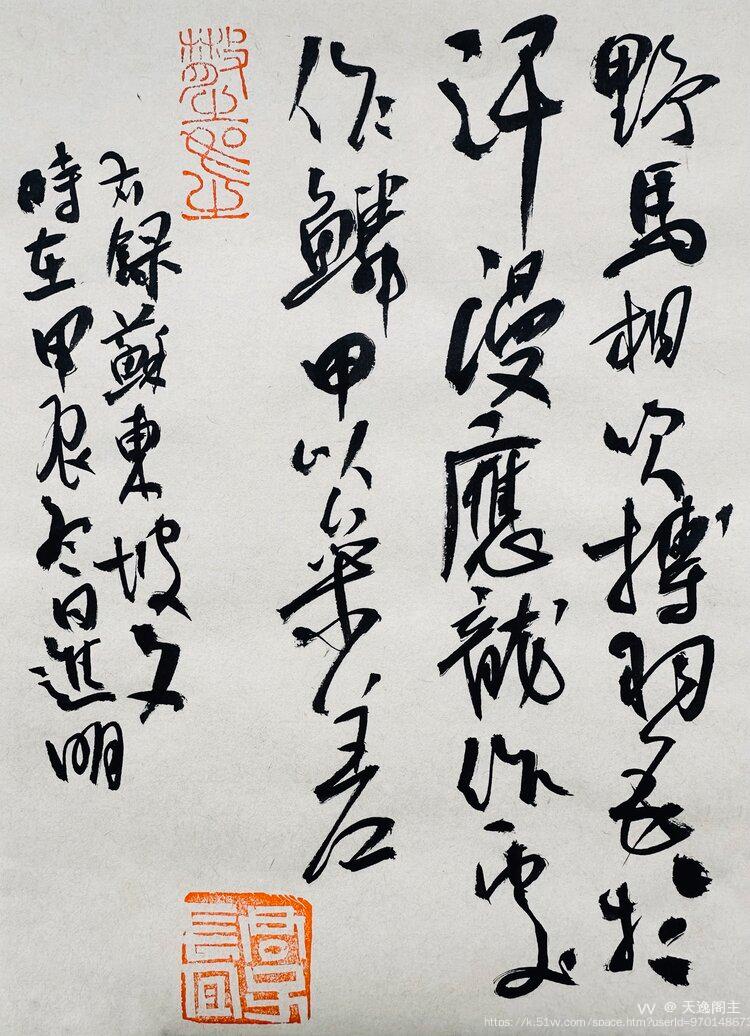 野馬相吹搏羽毛於
汗漫應龍作處
作鱗甲以參差
右録蘇東坡文
時在甲辰冬日進明
@ 天逸閣主
https://k.51w.com/space.htm?userId=97014867